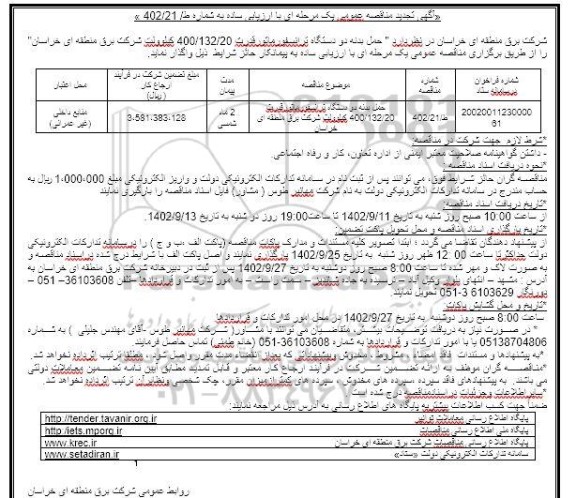 «آگهی تجدید مناقصه عمومی یک مرحله ای با ارزیابی ساده به شماره ط/ 402/21 »
شرکت برق منطقه ای خراسان در نظر دارد " حمل بدنه دو دستگاه ترانسفورماتور قدرت 400/132/20 کیلوولت شرکت برق منطقه ای خراسان"
را از طریق برگزاری مناقصه عمومی یک مرحله ای با ارزیابی ساده به پیمانکار حائز شرایط ذیل واگذار نماید.
شماره فراخوان در سامانه ستاد
شماره مناقصه
موضوع مناقصه
مدت پیمان
مبلغ تضمین شرکت در فرآیند ارجاع کار (ریال)
محل اعتبار
2002001123000061
ط/402/21
حمل بدنه دو دستگاه ترانسفورماتور قدرت 400/132/20 کیلوولت شرکت برق منطقه ای خراسان
2 ماه شمسی
3-581-383-128
منابع داخلی (غیر عمرانی)
*شرط لازم جهت شرکت در مناقصه:
- داشتن گواهینامه صلاحیت معتبر ایمنی از اداره تعاون، کار و رفاه اجتماعی
*نحوه دریافت اسناد مناقصه:
مناقصه گران حائز شرایط فوق، می توانند پس از ثبت نام در سامانه تدارکات الکترونیکی دولت و واریز الکترونیکی مبلغ 000-000-1 ریال به
حساب مندرج در سامانه تدارکات الکترونیکی دولت به نام شرکت مهانیر طوس ( مشاور) فایل اسناد مناقصه را بارگیری نمایند
*تاریخ دریافت اسناد مناقصه:
از ساعت 10:00 صبح روز شنبه به تاریخ 1402/9/11 تا ساعت 19:00 روز دو شنبه به تاریخ 1402/9/13.
*تاریخ بارگذاری اسناد مناقصه و محل تحویل پاکت تضمین:
از پیشنهاد دهندگان تقاضا می گردد ؛ ابتدا تصویر کلیه مستندات و مدارک پاکات مناقصه (پاکت الف ،ب و ج ) را در سامانه تدارکات الکترونیکی
دولت حداکثر تا ساعت 12:00 ظهر روز شنبه به تاریخ 1402/9/25 بارگذاری نمایند و اصل پاکت الف با شرایط درج شده در اسناد مناقصه و
به صورت لاک و مهر شده تا ساعت 8:00 صبح روز دوشنبه به تاریخ 1402/9/27 پس از ثبت در دبیرخانه شرکت برق منطقه ای خراسان به
آدرس : مشهد – انتهای بلوار وکیل آباد – نرسیده به جاده شاندیز – سمت راست – به امور تدارکات و قراردادها -تلفن 36103608– 051 –
دورنگار 36103629-051 تحویل نمایند.
*تاریخ و محل گشایش پاکات:
ساعت 8:00 صبح روز دوشنبه به تاریخ 1402/9/27 در محل امور تدارکات و قراردادها.
* در صورت نیاز به دریافت توضیحات بیشتر، متقاضیان می توانند با مشاور( شرکت مهانیر طوس -آقای مهندس جلیلی ) به شماره
05138704806 یا با امور تدارکات و قراردادها به شماره 36103608-051 (خانم طعنی) تماس حاصل فرمایند.
*به پیشنهادها و مستندات فاقد امضاء ، مشروط و مخدوش و پیشنهاداتی که بعد از انقضاء مدت مقرر واصل شود، مطلقا ترتیب اثر داده نخواهد شد.
*مناقصه گران موظف به ارائه تضمین شرکت در فرآیند ارجاع کار معتبر و قابل تمدید مطابق آیین نامه تضمین معاملات دولتی
می باشند. به پیشنهادهای فاقد سپرده، سپرده های مخدوش، سپرده های کمتر از میزان مقرر، چک شخصی و نظایر آن ترتیب اثر داده نخواهد شد.
*سایر اطلاعات و جزئیات در اسناد مناقصه درج شده است.
ضمنا جهت کسب اطلاعات بیشتر به پایگاه های اطلاع رسانی به آدرس ذیل مراجعه نمایند:
پایگاه اطلاع رسانی معاملات توانیر http://tender.tavanir.org.ir
پایگاه ملی اطلاع رسانی مناقصات http://iets.mporg.ir
پایگاه اطلاع رسانی مناقصات شرکت برق منطقه ای خراسان www.krec.ir
سامانه تدارکات الکترونیکی دولت «ستاد» www.setadiran.ir
1
روابط عمومی شرکت برق منطقه ای خراسان